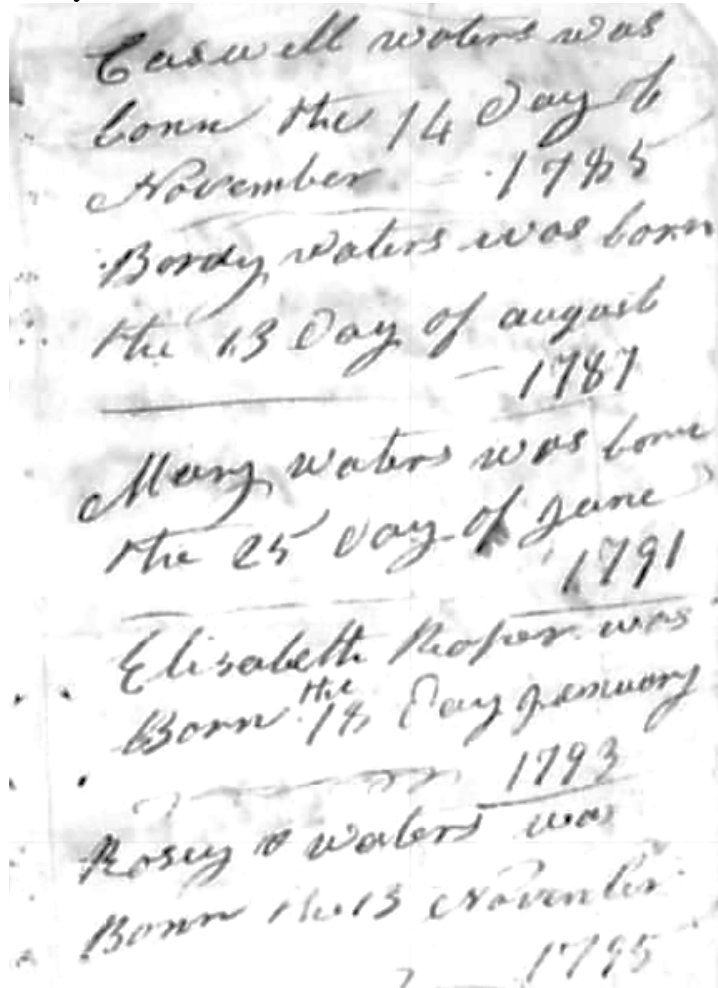 Caswell waters was
born the 14 Day of
November 1785
Bordy waters was born
the 13 Day of august
1787
Mary waters was born
the 25 Day of June
1791
Elisabeth Roper was
Born the 18 Day January
1793
Rosey waters was
Born the 13 November
1795